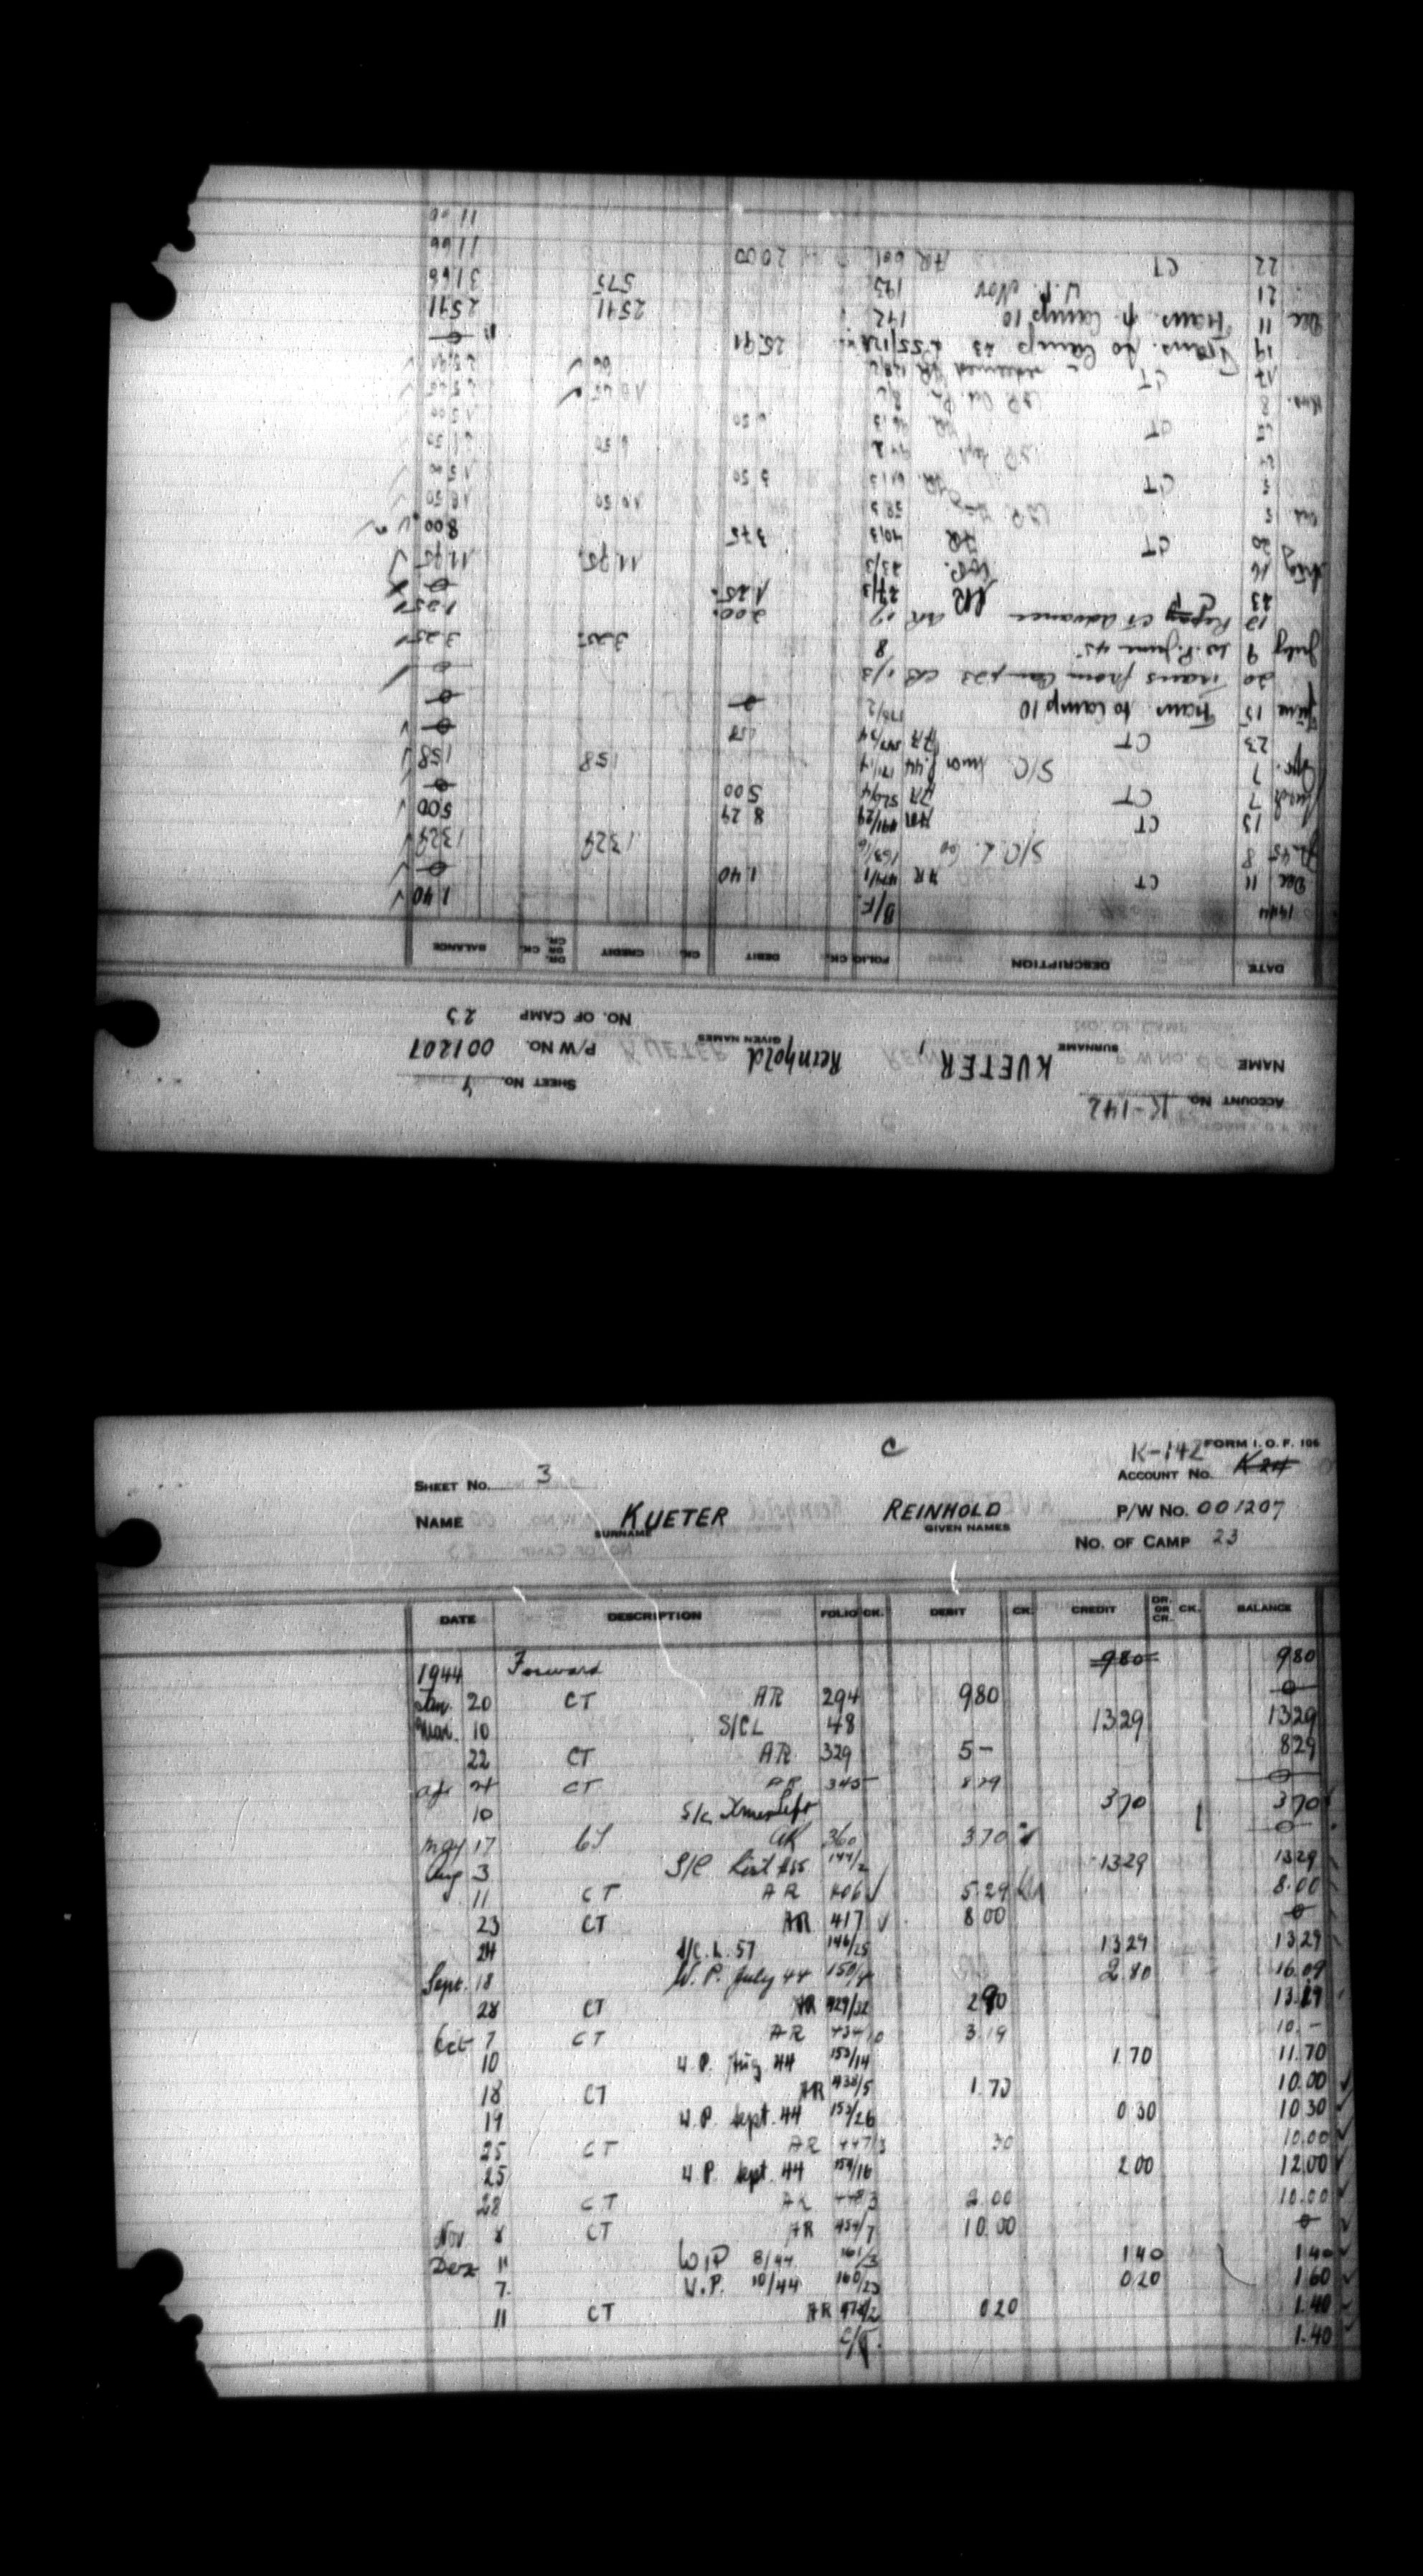 ACCOUNT No. K-142
SHEET No. 4
NAME KUETER, Reinhold P/W No. 001207
SURNAME GIVEN NAMES
NO. OF CAMP 23
DATE DESCRIPTION FOLIO CK. DEBIT CK. CREDIT DR. OR CR. CK. BALANCE
1944 B/F. 1.40
Dec 11 CT AR 474/1 1.40 0
8 S/C L. 60 163/6 1329 1329
13 CT AR 491/29 8 29 500
7 CT AR 520/4 500 0
Apr. 7 S/C 171/14 158 158
23 CT AR 158 0
June 15 Trans to Camp 10 175/2 0 0
20 Trans from Camp 23 CR 1/3 0
July 9 W.P. June 45 8 325 3.25
12 Repay CT advance AR 200 1.25
23 AR 27/3 1.25 0
Aug 16 W.P. 23/3 11.75 11.75
20 CT AR 40/3 375 800
5 W.P. 58/3 10 50 18 50
5 CT AR 61/3 3 50 15 00
24 W.P. Sept 6 50 21 50
25 CT AR 6 50 15 00
Nov. 8 W.P. Oct 10 25 25 25
17 CT 66 25.91
19 Trans. to Camp 23 25.91 0
Dec 11 Trans. fr. Camp 10 192 2591 2591
21 W.P. Nov 193 575 3166
22 CT AR 601 2000 1166
11 00
C
K-142 FORM I. O. F. 106
SHEET No. 3 ACCOUNT No. K 24
NAME KUETER REINHOLD P/W No. 001207
SURNAME GIVEN NAMES
No. OF CAMP 23
DATE DESCRIPTION FOLIO CK. DEBIT CK. CREDIT DR. OR CR. CK. BALANCE
1944 Forward 980 980
Jan. 20 CT AR 294 980 0
Mar. 10 S/CL 48 1329 1329
22 CT AR 329 5- 829
Apr 4 CT AR 345 829 0
10 S/c Xmas Left 370 370
May 17 CT AR 360 370 0
Aug 3 S/C List #55 144/2 1329 1329
11 CT AR 406 5.29 8.00
23 CT AR 417 8 00 0
24 S/C. L. 57 146/25 1329 1329
Sept. 18 W. P. July 44 150/4 2.80 16.09
28 CT AR 429/32 290 13.19
Oct 7 CT AR 434/10 3.19 10.-
10 W.P. Aug. 44 152/14 1.70 11.70
18 CT AR 438/5 1.70 10.00
19 W.P. Sept. 44 153/26 0 30 10 30
25 CT AR 447/3 30 10.00
25 W.P. Sept. 44 154/16 2.00 12.00
28 CT AR 448/3 2.00 10.00
Nov 8 CT AR 454/7 10.00 0
Dez 11 W/P 8/44 161/3 140 140
7. W.P. 10/44 160/23 020 1.60
11 CT AR 472/2 0 20 1.40
C/F. 1.40